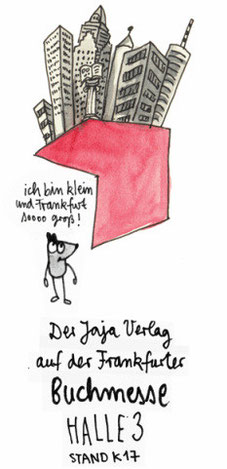 ich bin klein
und Frankfurt
soooo groß!
Der Jaja Verlag
auf der Frankfurter
Buchmesse
HALLE 3
STAND K17